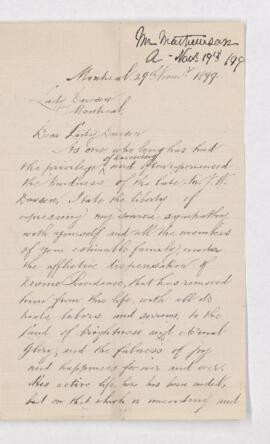 Mr Mathewson
A - Nov 29th /99
Montreal 29th Novr 1899.
Lady Dawson
Montreal,
Dear Lady Dawson
As one who long has had
the privilege of knowing and experienced
the kindness of the late Sir J. W.
Dawson, I take the liberty of
expressing my sincere sympathy
with yourself and all the members
of your estimable family, under
the afflictive dispensation of
Divine Providence, that has removed
him from this life, with all its
trials, labors and sorrows, to the
land of brightness and eternal
glory, and the fulness of joy
and happiness for ever and ever.
His active life here has been ended,
but on that which is unending and